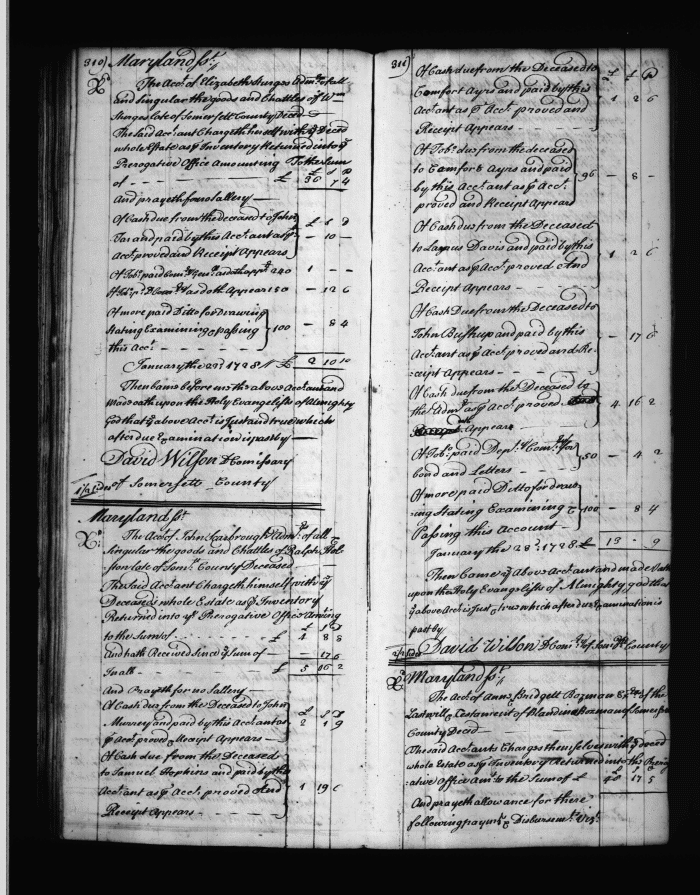 310) Maryland ss.t
The Acct of Elizabeth Sturges Adm.x of all
and Singular the goods and Chattles of W.m
Sturges late of Somersett County Decd
The said Acc.ant Chargeth himself with ye Decd
whole Estate as p Inventory Returned into ye
Prerogative Office Amounting To the Sum
of - - - - £ 36 7 4
And prayeth for no allery
Of Cash due from the deceased to John
Tar and paid by this Acc.ant as p
Acct proved and Receipt Appears - 10 -
Of Tobo. paid 240 1 - -
Of Tobo. as doth Appear 150 - 12 6
Of more paid Ditto for Drawing
Stating Examining & passing
this Acct. 100 - 8 4
January the 22d 1728 £ 2 10 10
Then Came before me the above Acc.ant and
Made oath upon the Holy Evangelists of Almighty
God that ye above Acct is Just and true which
after due Examination is past by
David Wilson D Comissary
of Somersett County
Maryland ss.t
The Acct of John Scarbrough Adm.r of all
Singular the goods and Chattles of Ralph
late of Som.t County Deceased
The Said Acc.ant Chargeth himself with ye
Deceaseds whole Estate as p Inventory
Returned into ye Prerogative Office Am.ing
to the Sum of - - - £ 4 8 8
And hath Received Since ye Sum of - 17 6
In all - - £ 5 06 2
And Prayeth for no Sallery
Of Cash due from the Deceased to John
Murrey and paid by this Acc.ant as
p Acct proved & Receipt Appears 2 1 9
Of Cash due from the Deceased
to Samuel Hopkins and paid by this
Acc.ant as p Acct. proved And
Receipt Appears - - 1 19
311)
Of Cash due from the Deceased to
Comfort Ayrs and paid by this
Acc.ant as p Acct proved and
Receipt Appears - - 1 2 6
Of Tobo. due from the deceased
to Comfort Ayrs and paid
by this Acc.ant as p Acct.
proved and Receipt Appears 96 - 8 -
Of Cash due from the Deceased
to Davis and paid by this
Acc.ant as p Acct. proved And
Receipt Appears - - 1 2 6
Of Cash Due from the Deceased to
John Bishup and paid by this
Acc.ant as p Acct. proved and Re-
ceipt Appears - - 17 6
Of Cash due from the Deceased by
the Adm.r as p Acct. proved
Appears - 4 16 2
Of Tobo. paid Dept. Com.ry for
bond and Letters - - 50 - 4 2
Of more paid Ditto for draw-
ing Stating Examining &
Passing this Account 100 - 8 4
January the 22d. 1728 £ 13 - 9
Then Came ye Above Acc.ant and made Oath
upon the Holy Evangelists of Almighty god that
ye above Acct is Just & true which after due Examination is
past by
David Wilson D Com.ry of Som.tt County
Maryland ss.t
The Acct of Ann & Bridgett Bozman Ex.trs of the
Last will & Testament of Blandina Bozman of Somersett
County Decd
The said Acc.ants Charges themselves with ye decd
whole Estate as p Inventory Returned into the Prerog-
ative Office Am.t to the Sum of £ 40 17 5
And prayeth allowance for these
following paym.ts & Disbursem.ts Viz.t